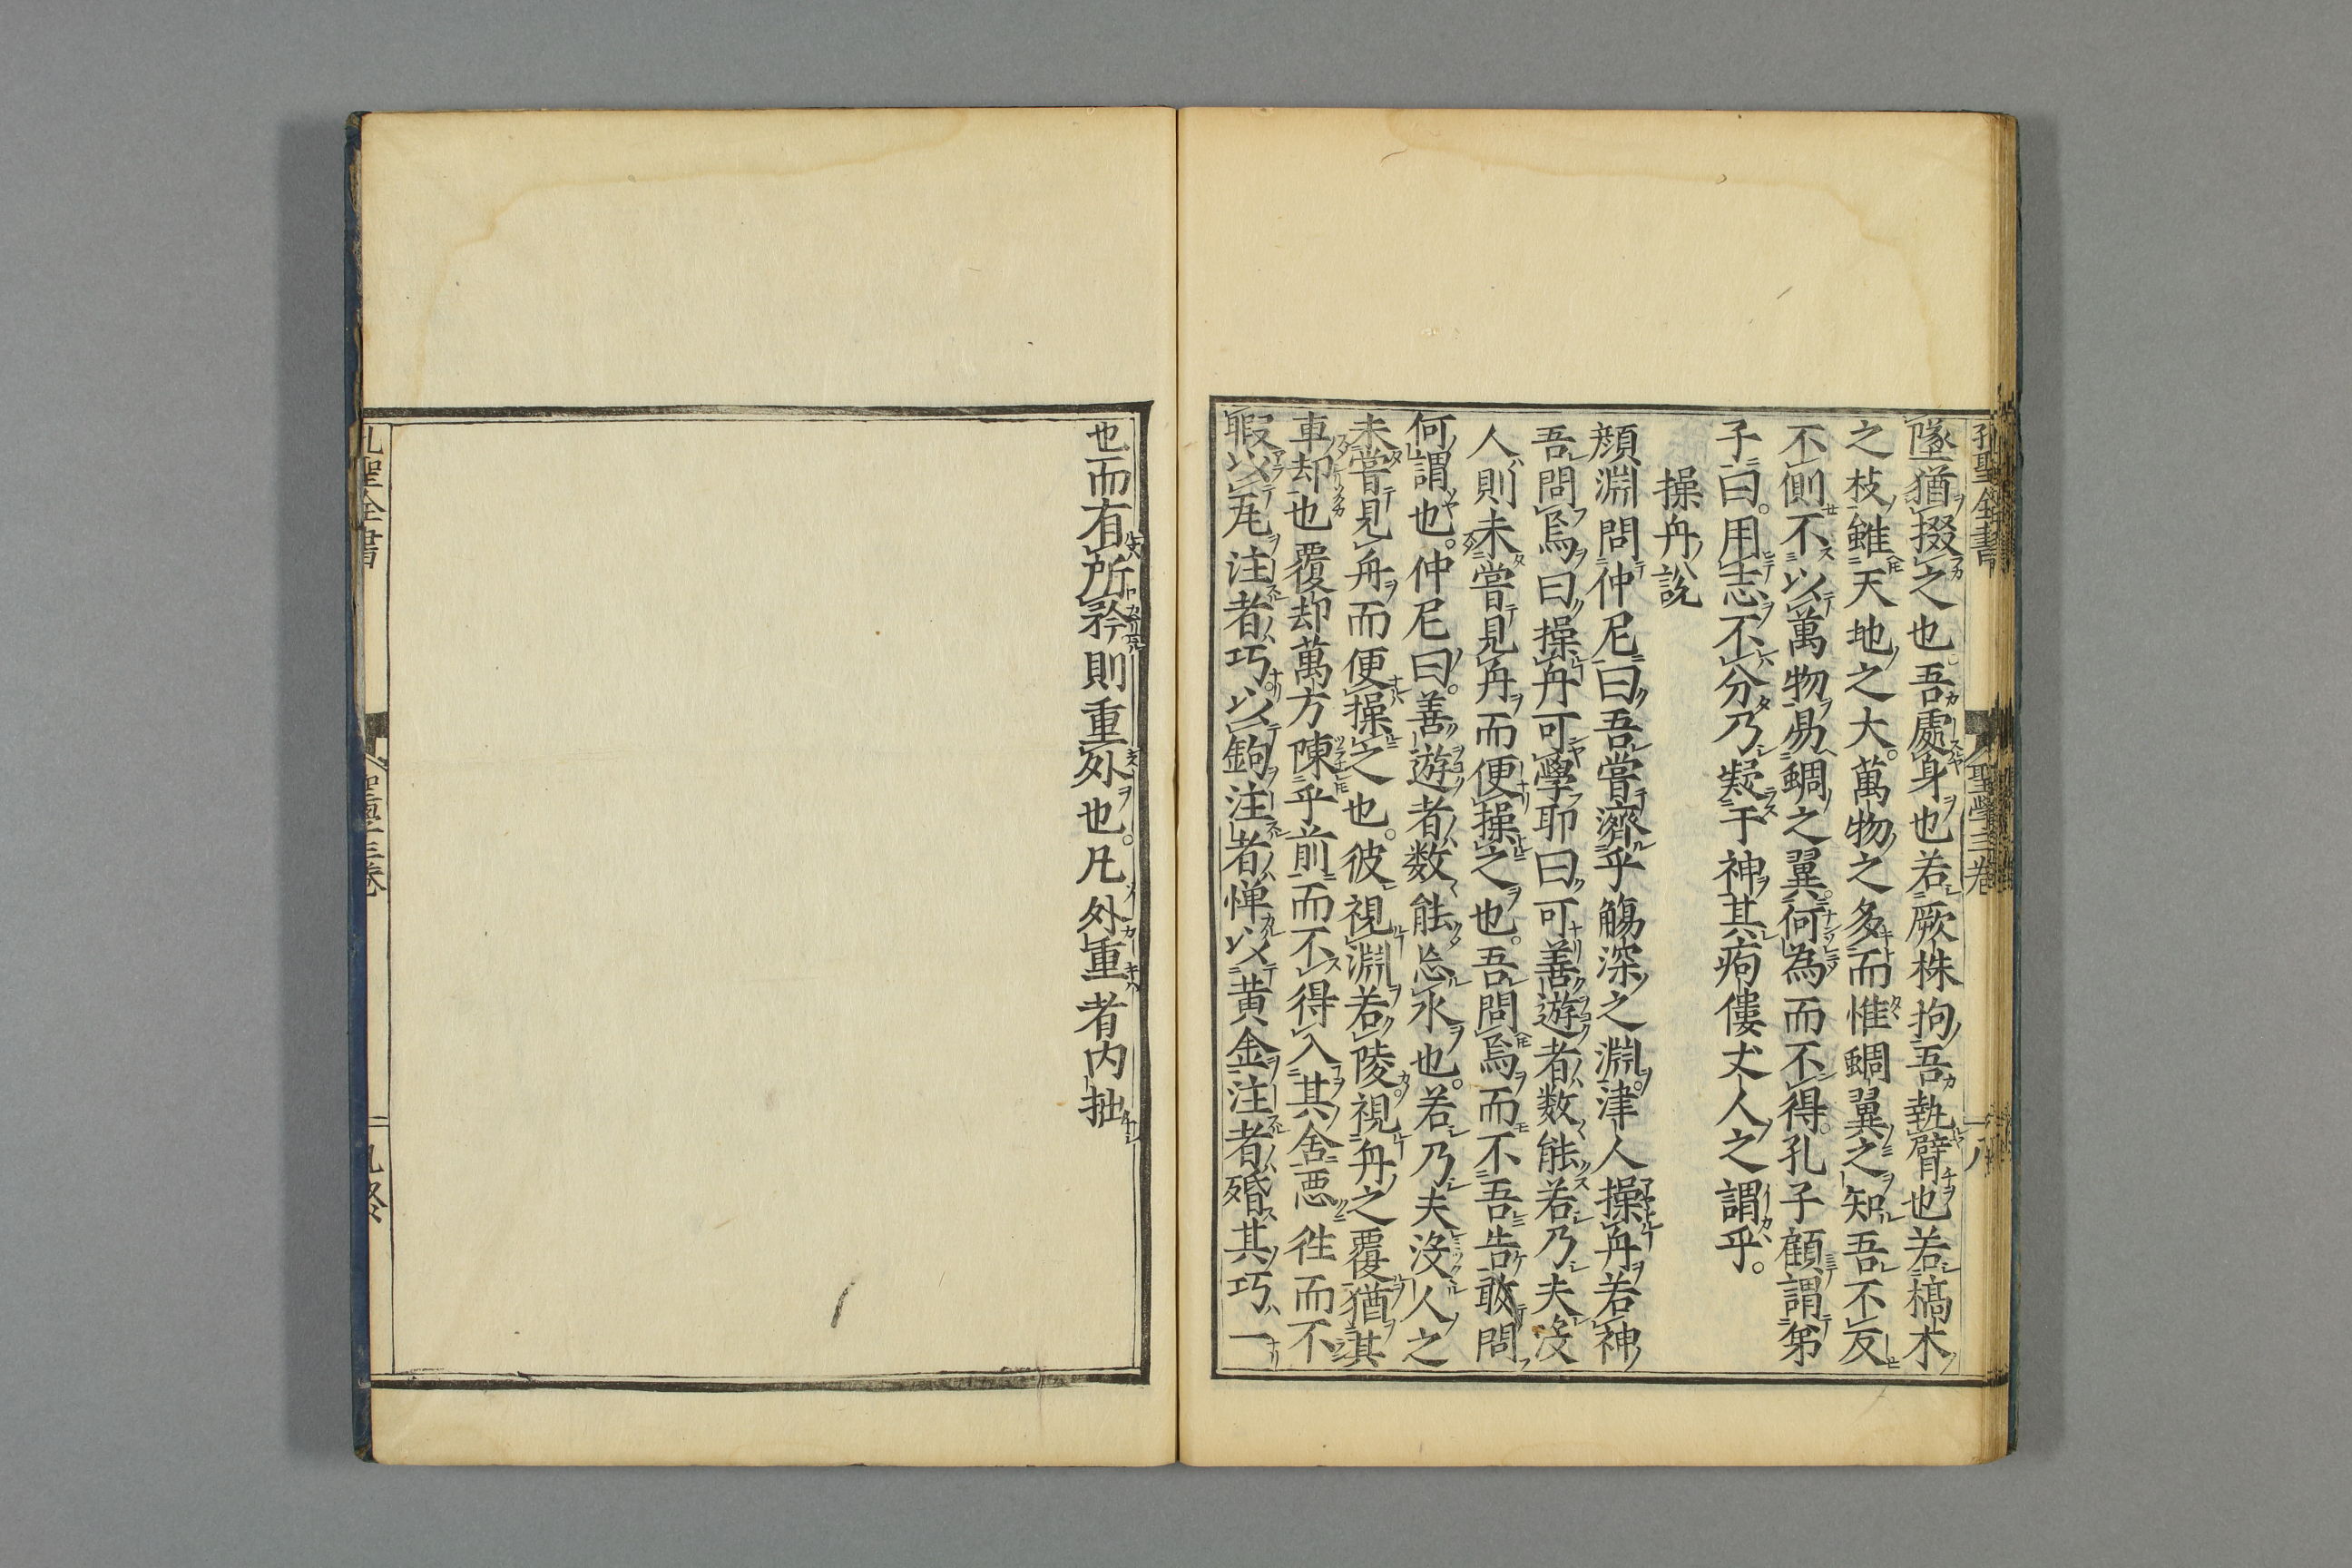 孔聖全書 聖學三卷 一八
墜猶掇之也。吾處身也若厥株拘吾執臂也若槁木
之枝雖天地之大。萬物之多而惟蜩翼之知吾不反
不側不以萬物易蜩之翼。何為而不得。孔子顧謂弟
子曰。用志不分乃凝于神其痀僂丈人之謂乎。
操舟說
顏淵問仲尼曰吾嘗濟乎觴深之淵。津人操舟若神
吾問焉曰操舟可學耶曰可善遊者数能若乃夫沒
人則未嘗見舟而便操之也。吾問焉而不吾告敢問
何謂也。仲尼曰。善遊者数能忘水也。若乃夫沒人之
未嘗見舟而便操之也。彼視淵若陵。視舟之覆猶其
車却也覆却萬方陳乎前而不得入其舍惡徃而不
暇以瓦注者巧。以鉤注者憚以黄金注者殙其巧一
也而有所矜則重外也。凡外重者内拙
孔聖全書 聖學三卷 一九終